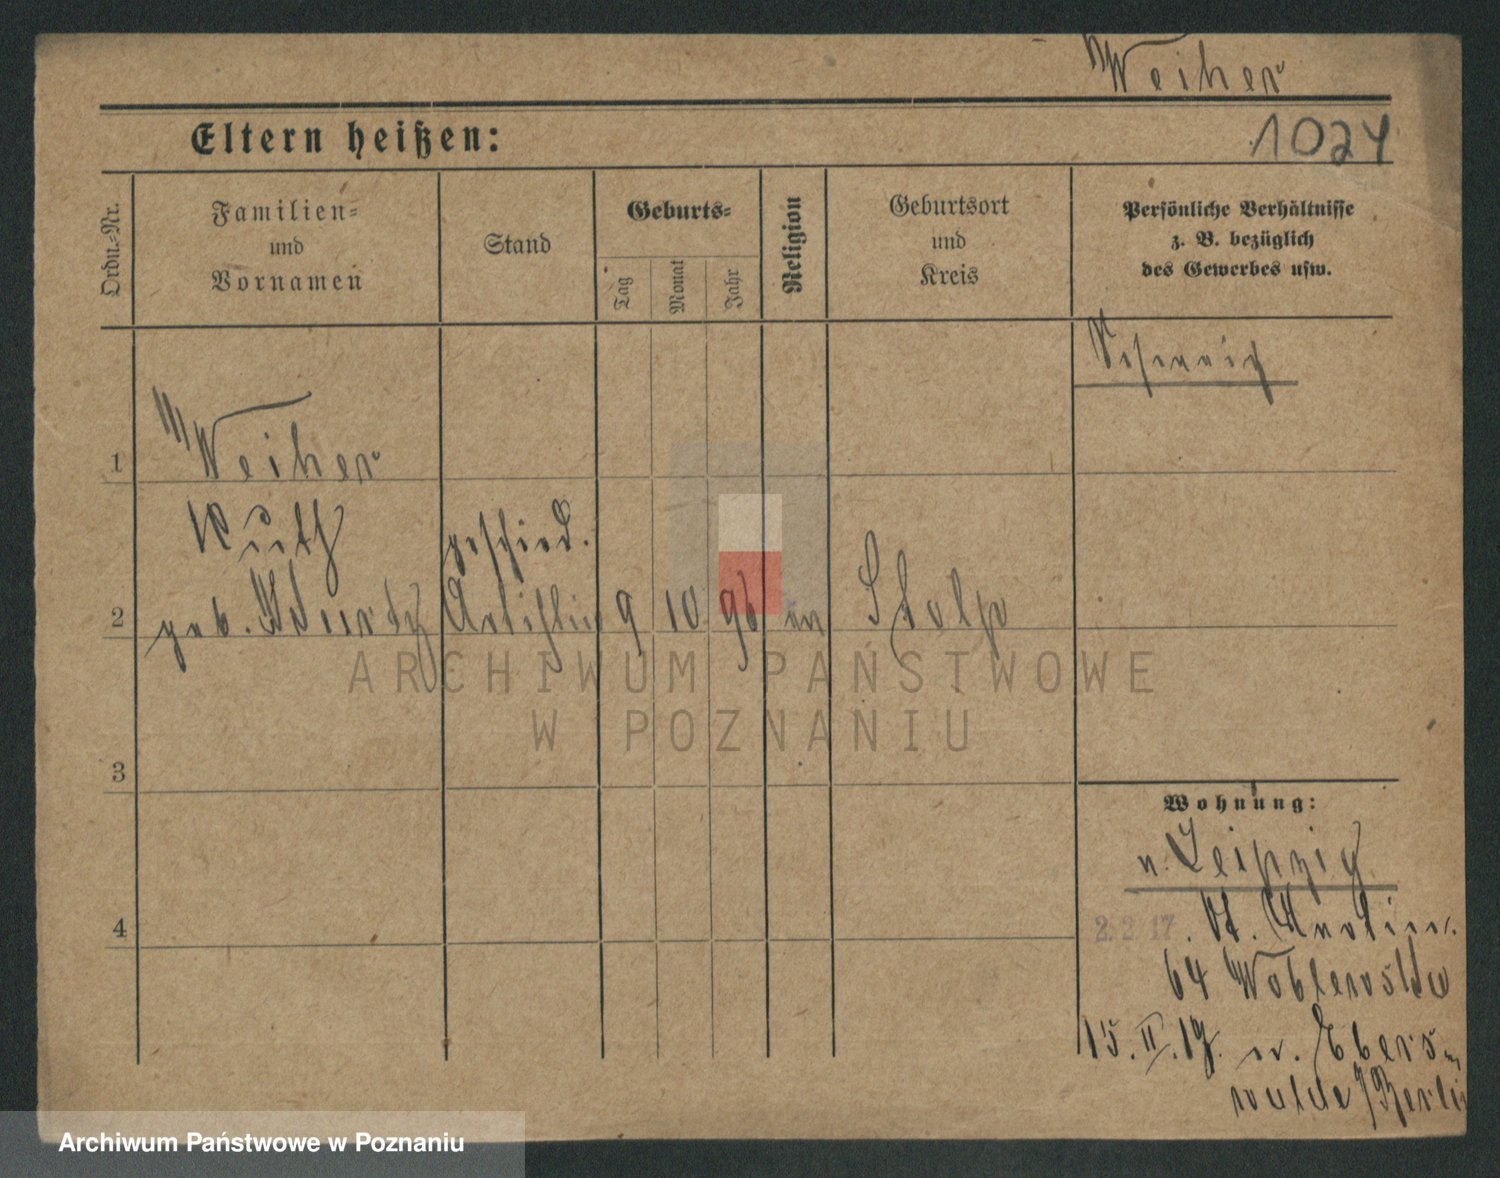 Weiher
Eltern heißen:
1024
Ordn.-Nr.
Familien-
und
Vornamen
Stand
Geburts-
Tag
Monat
Jahr
Religion
Geburtsort
und
Kreis
Persönliche Verhältnisse
z. B. bezüglich
des Gewerbes usw.
1
Weiher
Ruth
geschied.
2
geb.
Artistin
9
10
96
ev
Stolp
ARCHIWUM PAŃSTWOWE
W POZNANIU
3
Wohnung:
n. Leipzig
4
2. 2. 17. St.
64
15. II. 17. n. Ebers-
walde / Berlin
Archiwum Państwowe w Poznaniu